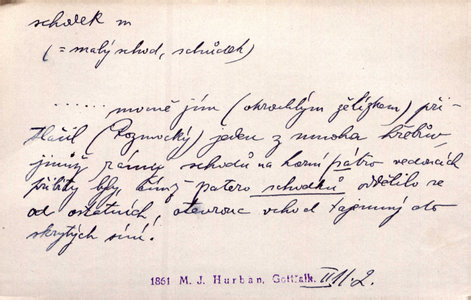 schodek m
(= malý schod, schůdek)
....... mocně jím (okrouhlým želízkem) při-
tlačil (Rozmocký) jeden z mnoha hřebův,
jimiž rámy schodů na horní patro vedoucích
přibity byly a hned patero schodků oddělilo se
od ostatních, otevrouc vchod tajemný do
skrytých síní.
1861 M. J. Hurban, Gottšalk. II 11. 2.